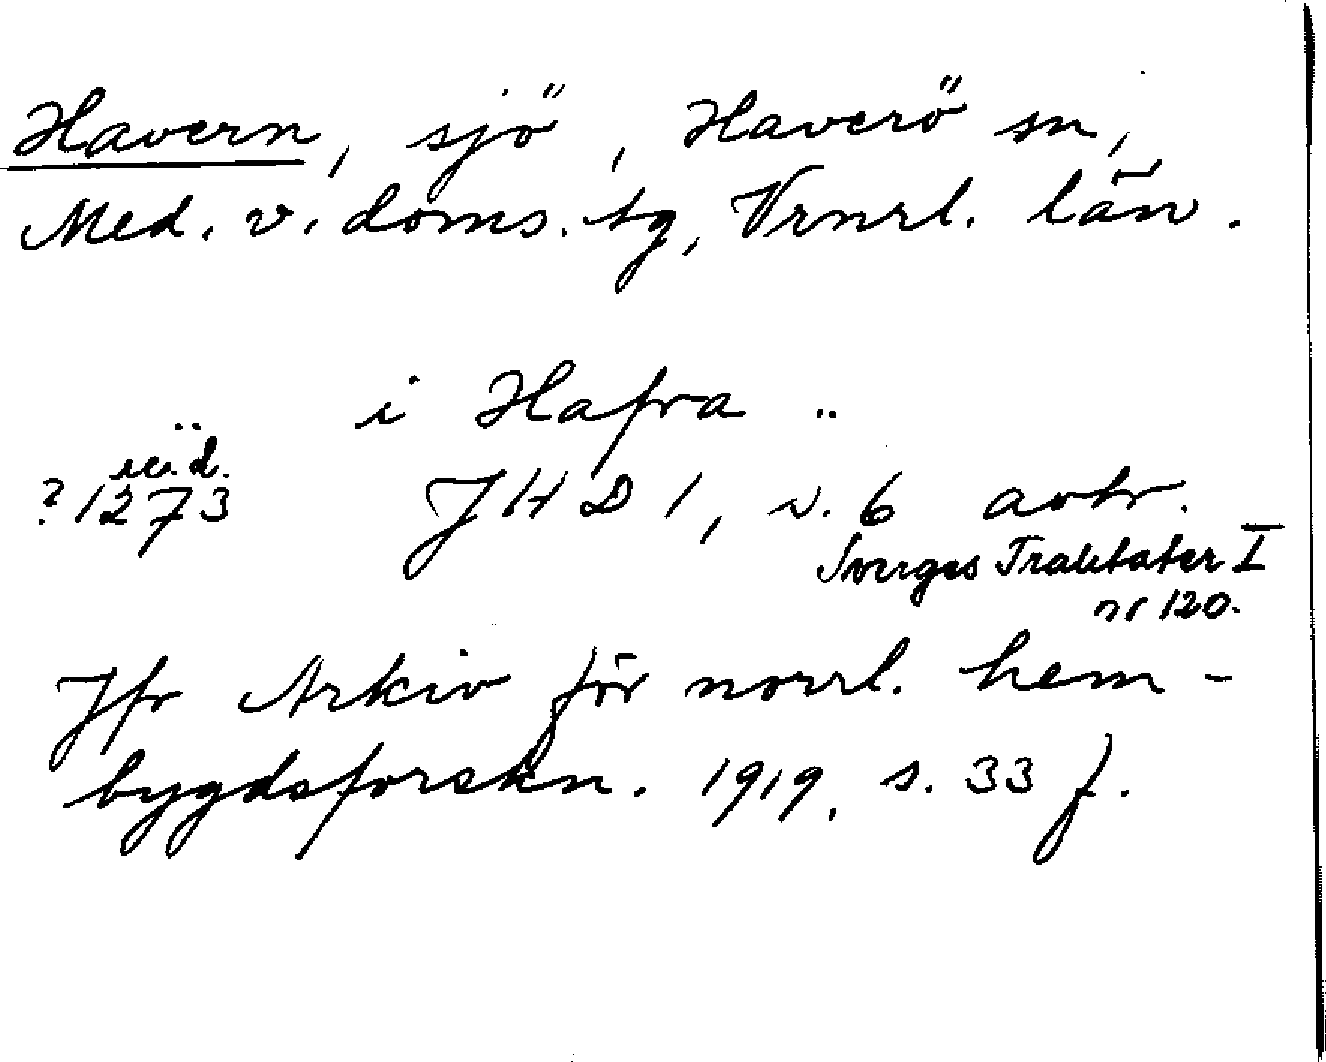 Havern, sjö, Haverö sn,
Med. v. doms. tg, Vrnrl. län.
i Hafra ..
u.d.
? 1273 JHD 1, s. 6 avtr.
Sveriges Traktater I
nr 120.
Jfr Arkiv för norrl. hem-
bygdsforskn. 1919, s. 33 f.